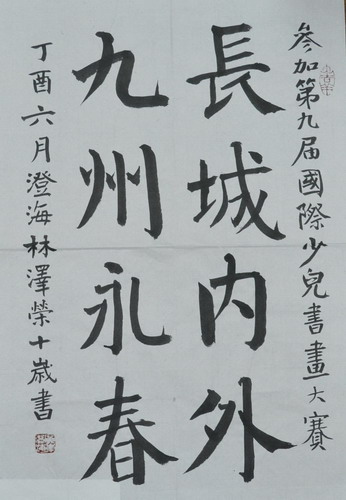 參加第九届國際少兒書畫大賽
長城内外
九州永春
丁酉六月澄海林澤榮十歲書